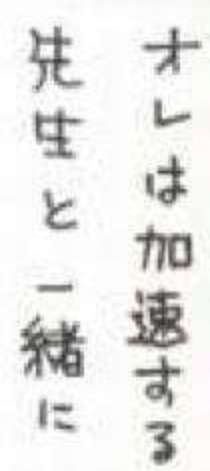 オレは加速する
先生と一緒に